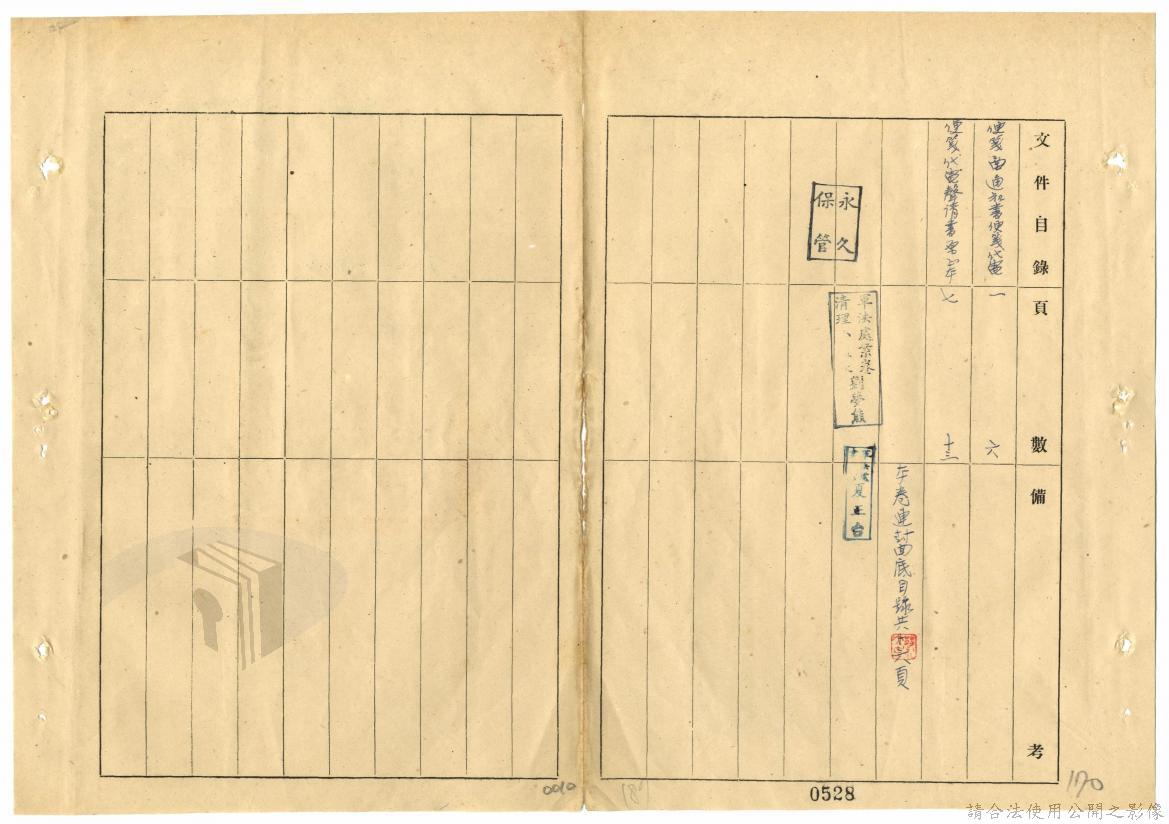 文件目錄
頁數
備考
便箋函通知書便箋代電
一
六
便箋代電聲請書
七
十三
本卷連封面底目錄共
頁
永久
保管
軍法處案卷
清理
劉夢熊
夏正台
0010
0528
170
請合法使用公開之影像